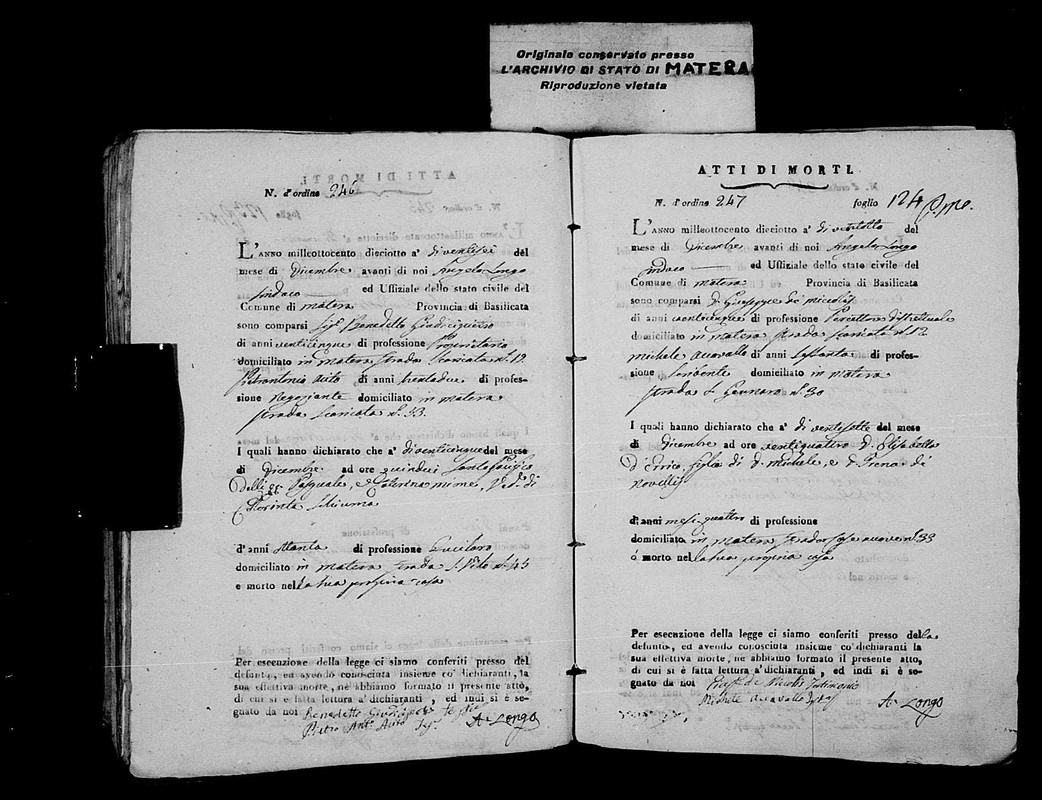 Originale conservato presso
L'ARCHIVIO DI STATO DI MATERA
Riproduzione vietata
N. d'ordine 246
L'ANNO milleottocento dieciotto a' di ventisei del
mese di Dicembre avanti di noi Angelo Longo
Sindaco ed Uffiziale dello stato civile del
Comune di matera Provincia di Basilicata
sono comparsi Benedetto
di anni venticinque di professione Proprietario
domiciliato in matera strada Scaricata n. 12
di anni trentadue di profes-
sione Negoziante domiciliato in matera
strada Scaricata n. 33
I quali hanno dichiarato che a' di venticinque del mese
di Dicembre ad ore quindici
Pasquale, e Caterina
d'anni ottanta di professione
domiciliato in matera strada S. Vito n. 45
e morto nella sua propria casa
Per esecuzione della legge ci siamo conferiti presso del
defunto, ed avendo conosciuta insieme co' dichiaranti la
sua effettiva morte, ne abbiamo formato il presente atto,
di cui si è fatta lettura a' dichiaranti, ed indi si è se-
gnato da noi Benedetto
A. Longo
ATTI DI MORTI.
N. d'ordine 247 foglio 124
L'ANNO milleottocento dieciotto a' di ventotto del
mese di Dicembre avanti di noi Angelo Longo
Sindaco ed Uffiziale dello stato civile del
Comune di matera Provincia di Basilicata
sono comparsi D. Giuseppe de Niccolis
di anni venticinque di professione Percettore Distrettuale
domiciliato in matera strada Scaricata n. 12
michele Acovalle di anni sessanta di profes-
sione Scribente domiciliato in matera
strada S. Gennaro n. 30
I quali hanno dichiarato che a' di ventisette del mese
di Dicembre ad ore ventiquattro D. Elisabetta
D'Errico, figlia di D. michele, e D. Irena de
Novellis
d'anni mesi quattro di professione
domiciliato in matera strada n. 33
è morto nella sua propria casa
Per esecuzione della legge ci siamo conferiti presso della
defunto, ed avendo conosciuta insieme co' dichiaranti la
sua effettiva morte, ne abbiamo formato il presente atto,
di cui si è fatta lettura a' dichiaranti, ed indi si è se-
gnato da noi de Niccolis Testimonio
Michele Acovalle
A. Longo